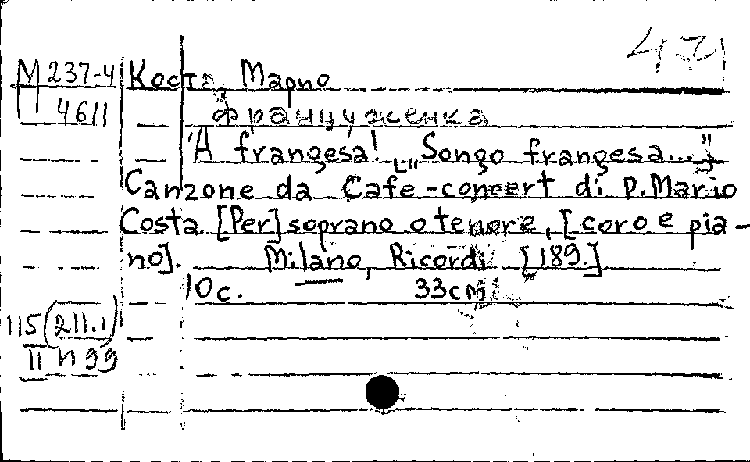 47
М 237-4 Коста, Марио
4611 Француженка
'A frangesa! [„Songo frangesa...”]
Canzone da Cafe-concert di P. Mario
Costa. [Per] soprano o tenore, [coro e pia-
no]. Milano, Ricordi [189.]
10 c. 33 см
115 (211.1)
II н 99